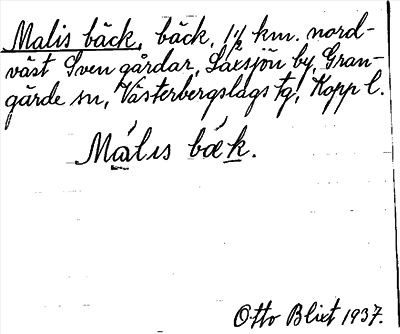 Malis bäck, bäck, 1½ km. nord-
väst Sven gårdar, Laxsjön by, Gran-
gärde sn, Västerbergslags tg, Kopp l.
Málıs bǽk.
Otto Blixt 1937.